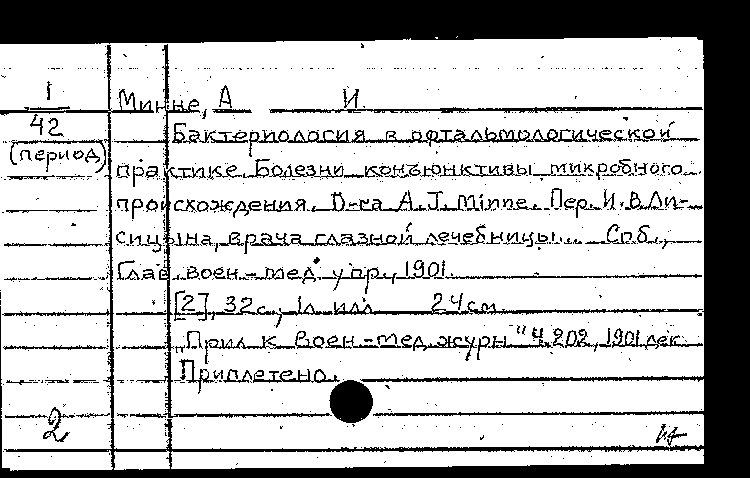 1
42
(период)
Минне, А И.
Бактериология в офтальмологической
практике. Болезни конъюнктивы микробного
происхождения. D-ra A. J. Minne. Пер. И. В. Ли-
сицына, врача глазной лечебницы... Спб.,
Глав. воен-мед. упр., 1901.
[2], 32 с., 1 л. илл. 24 см.
„Прил. к Воен-мед. журн." Ч. 202, 1901 дек.
Приплетено.
2